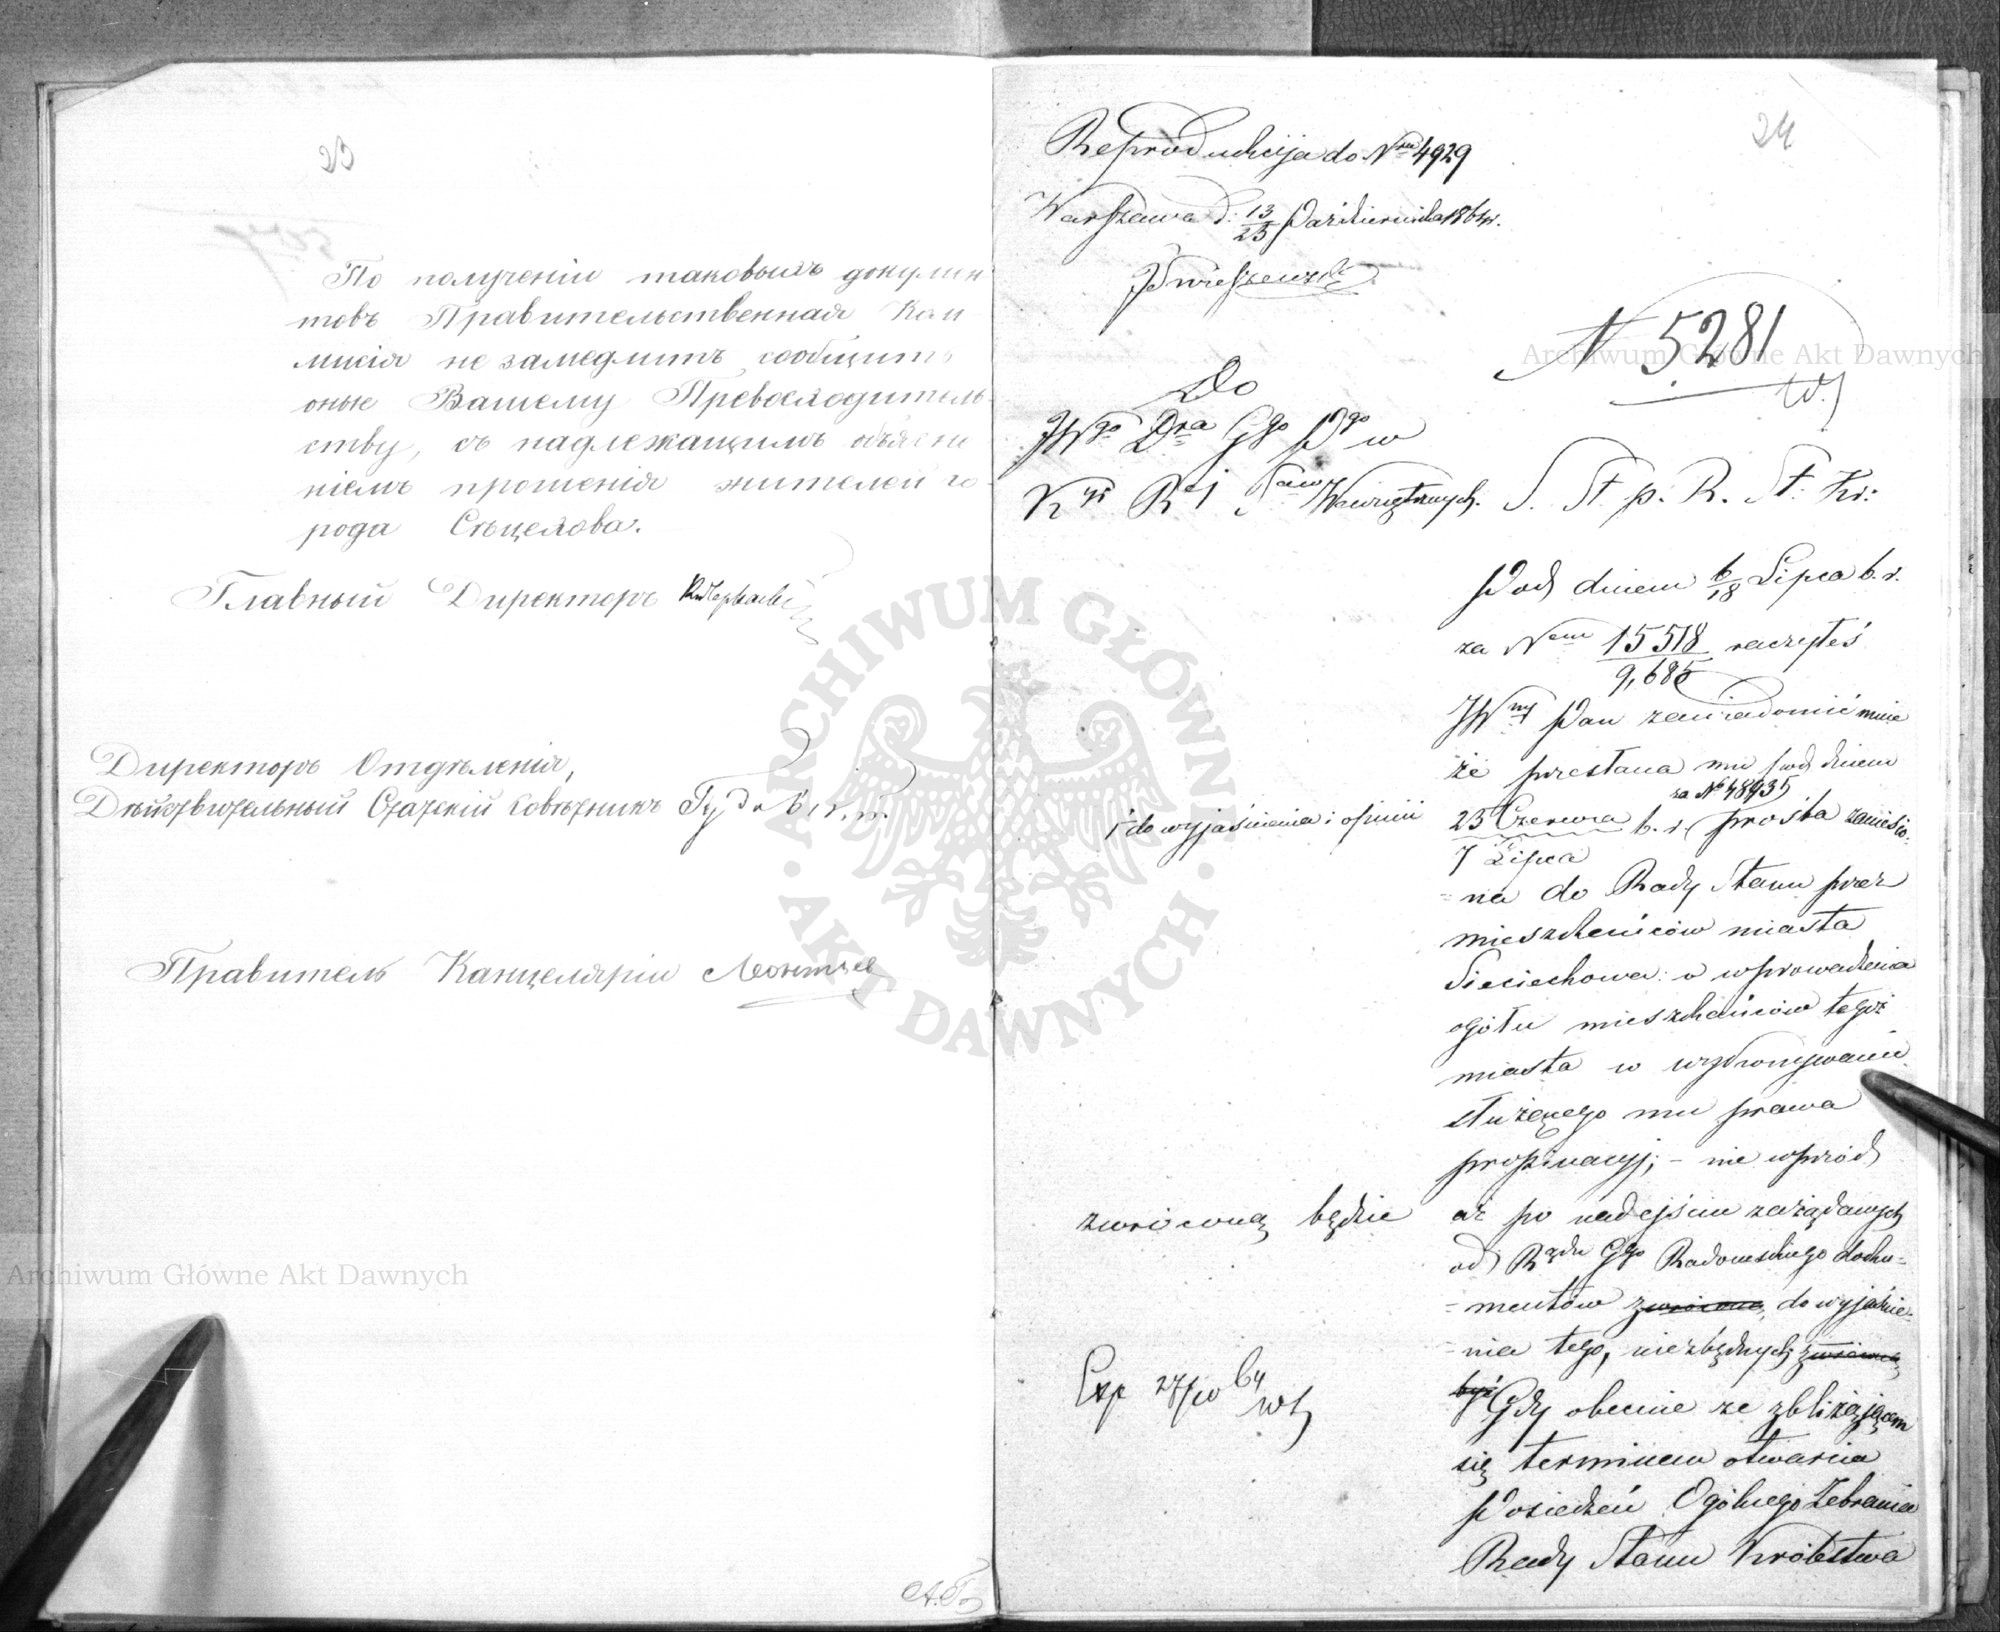 23
По полученіи таковыхъ докумен
товъ Правительственная Ком
мисія не замедлитъ сообщить
оные Вашему Превосходитель
ству, съ надлежащимъ объясне
ніемъ прошенія жителей го-
рода Сѣцехова.
Главный Директоръ
Директоръ Отдѣленія,
Дѣйствительный Статскій Совѣтникъ
Правитель Канцеляріи Леонтьев
24
Reprodukcija do Nru 4929
Warszawa d: 13/25 Października 1864 r.
N 5281
Do
JWgo Dra Ggo Pgo w
Kyi R i Wewnętrznych. S. St. p. R. St: Kr:
Pod dniem 6/18 Lipca b. r.
za Nem 15518/9,685 raczyłeś
JWny Pan zawiadomić mnie
że przesłana mu pod dniem
za No 48935
i do wyjaśnienia i opinii
23 Czerwca/7 Lipca b. r. prośba zaniesio-
-na do Rady Stanu przez
mieszkańców miasta
Sieciechowa: o wprowadzenia
ogółu mieszkańców tegoż
miasta w wykonywanie
służącego mu prawa
propinacyj; - nie wprzód
zwróconą będzie
aż po nadejściu zażądanych
od Rządu Ggo Radomskiego doku-
-mentów zwróconą, do wyjaśnie-
-nia tego, niezbędnych
być Gdy obecnie ze zbliżającem
się terminem otwarcia
Posiedzeń Ogólnego Zebrania
Rady Stanu Królestwa
Exp 27/10 64
Archiwum Główne Akt Dawnych
Archiwum Główne Akt Dawnych
ARCHIWUM GŁÓWNE · AKT DAWNYCH ·